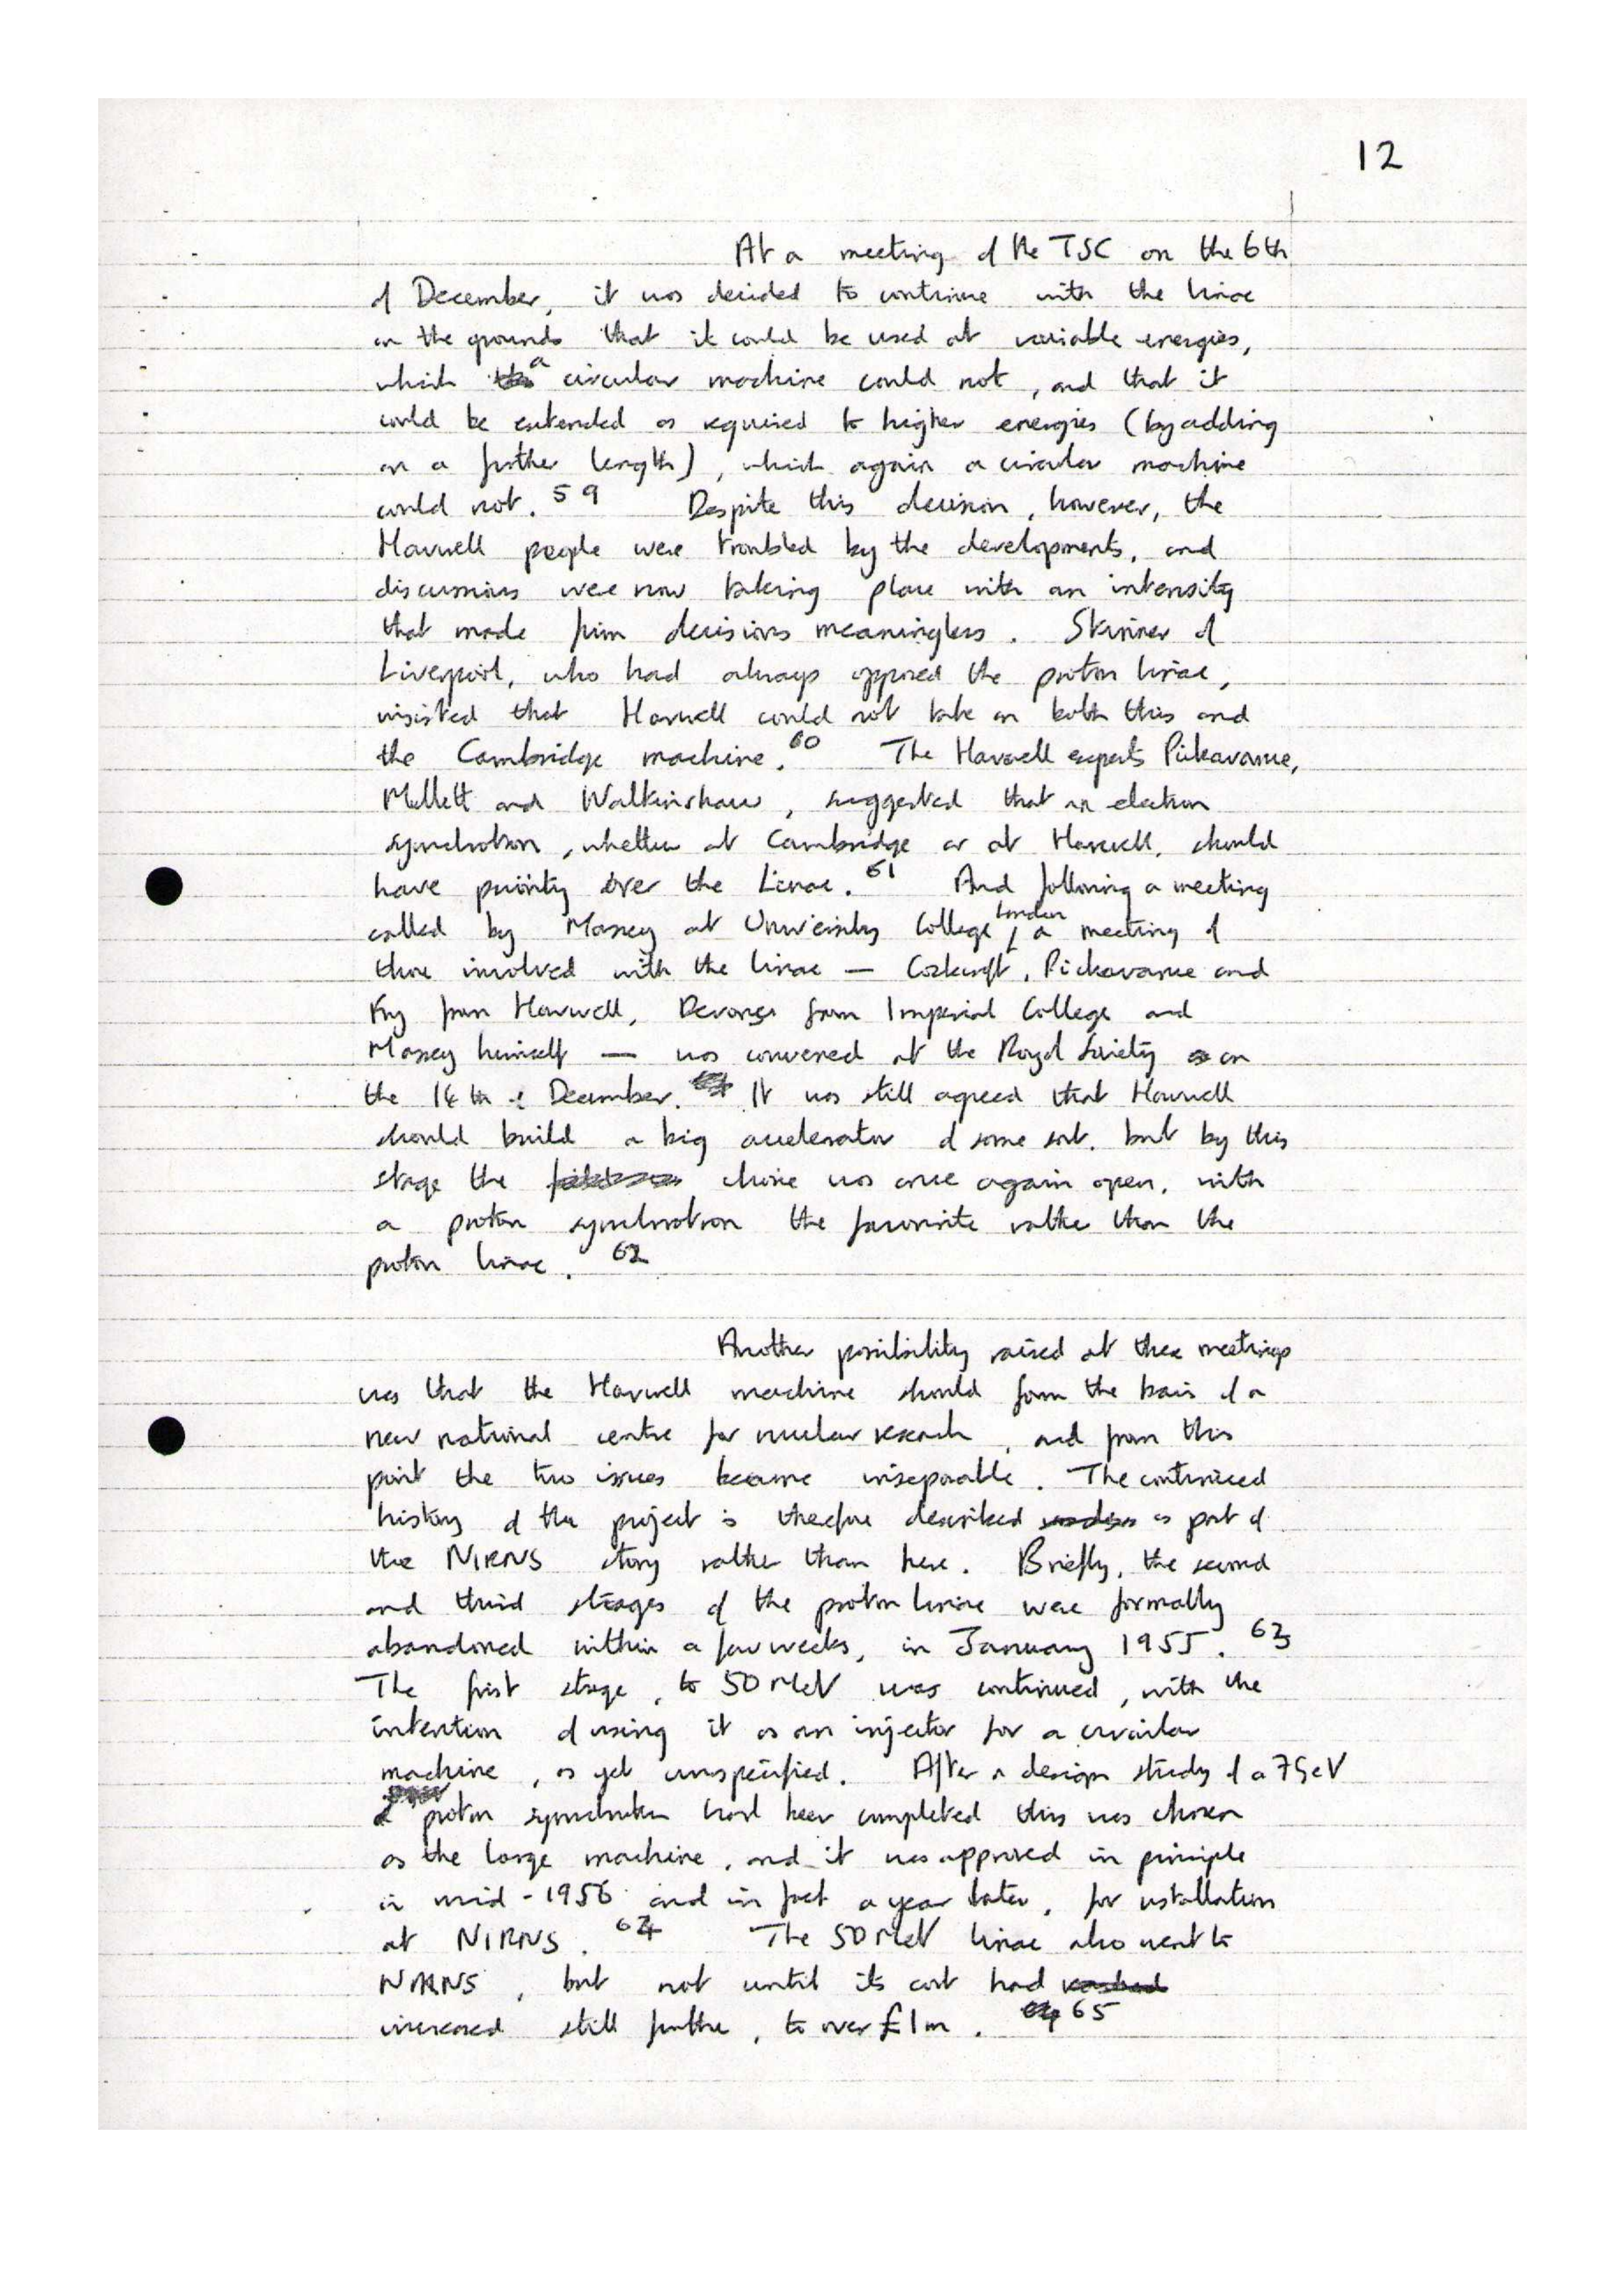 12
At a meeting of the TSC on the 6th
of December, it was decided to continue with the linac
on the grounds that it could be used at variable energies,
which a circular machine could not, and that it
could be extended as required to higher energies (by adding
on a further length), which again a circular machine
could not. 59 Despite this decision, however, the
Harwell people were troubled by the developments, and
discussions were now taking place with an intensity
that made firm decisions meaningless. Skinner of
Liverpool, who had always opposed the proton linac,
insisted that Harwell could not take on both this and
the Cambridge machine. 60 The Harwell experts Pickavance,
Mullett and Walkinshaw, suggested that an electron
synchrotron, whether at Cambridge or at Harwell, should
have priority over the Linac. 61 And following a meeting
called by Massey at University College London, a meeting of
those involved with the linac — Cockcroft, Pickavance and
Fry from Harwell, Devons from Imperial College and
Massey himself — was convened at the Royal Society on
the December. It was still agreed that Harwell
should build a big accelerator of some sort, but by this
stage the choice was once again open, with
a proton synchrotron the favourite rather than the
proton linac. 62
Another possibility raised at these meetings
was that the Harwell machine should form the basis of a
new national centre for nuclear research, and from this
point the two issues became inseparable. The continued
history of the project is therefore described as part of
the NIRNS story rather than here. Briefly, the second
and third stages of the proton linac were formally
abandoned within a few weeks, in January 1955. 63
The first stage, to 50 MeV was continued, with the
intention of using it as an injector for a circular
machine, as yet unspecified. After a design study of a 7 GeV
proton synchrotron had been completed this was chosen
as the large machine, and it was approved in principle
in mid-1956 and in fact a year later, for installation
at NIRNS. 64 The 50 MeV linac also went to
NIRNS, but not until its cost had
increased still further, to over £1m. 65